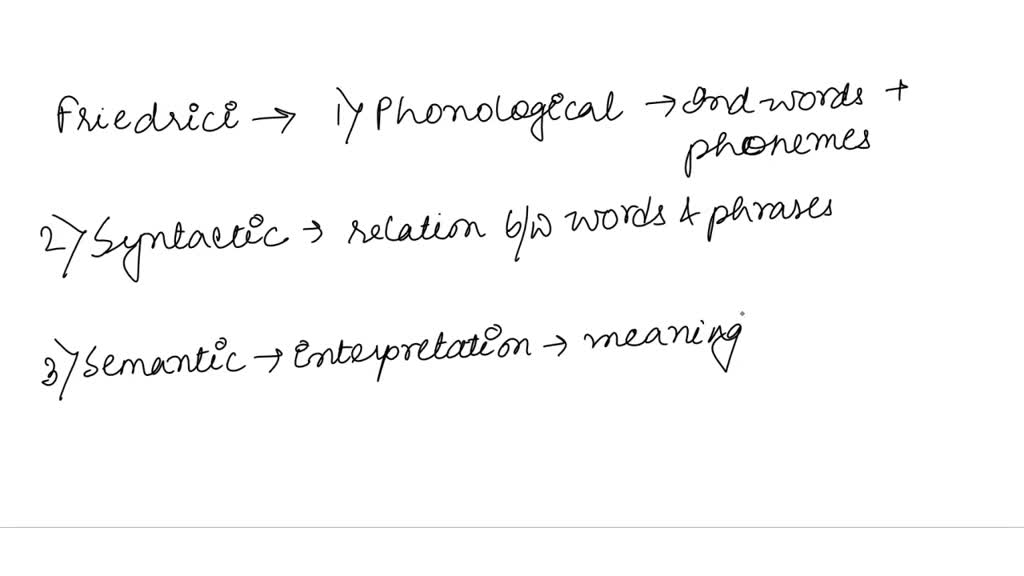 Friedrici → 1) Phonological → Ind words +
phonemes
2) Syntactic → relation b/w words & phrases
3) Semantic → Interpretation → meaning